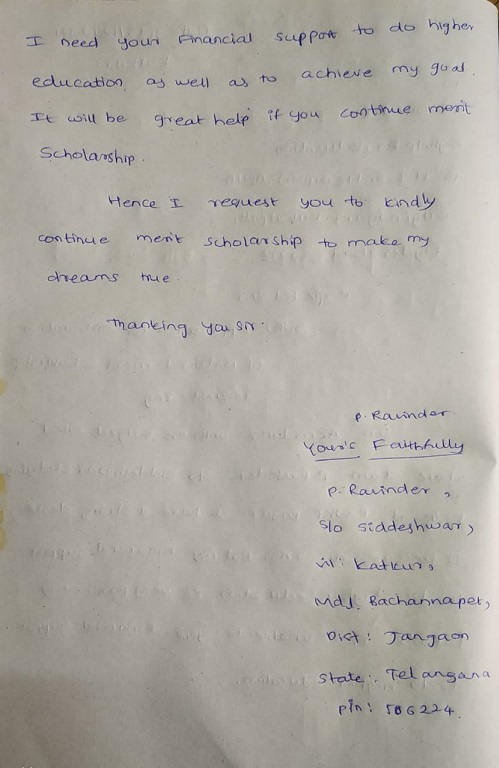 I need your Financial support to do higher
education, as well as to achieve my goal.
It will be great help if you continue merit
Scholarship.
Hence I request you to kindly
continue merit scholarship to make my
dreams true.
Thanking you sir.
P. Ravinder
Your's Faithfully
P. Ravinder,
S/o Siddeshwar,
Vil: Katkur,
Mdl: Bachannapet,
Dist: Jangaon
State: Telangana
Pin: 506224.